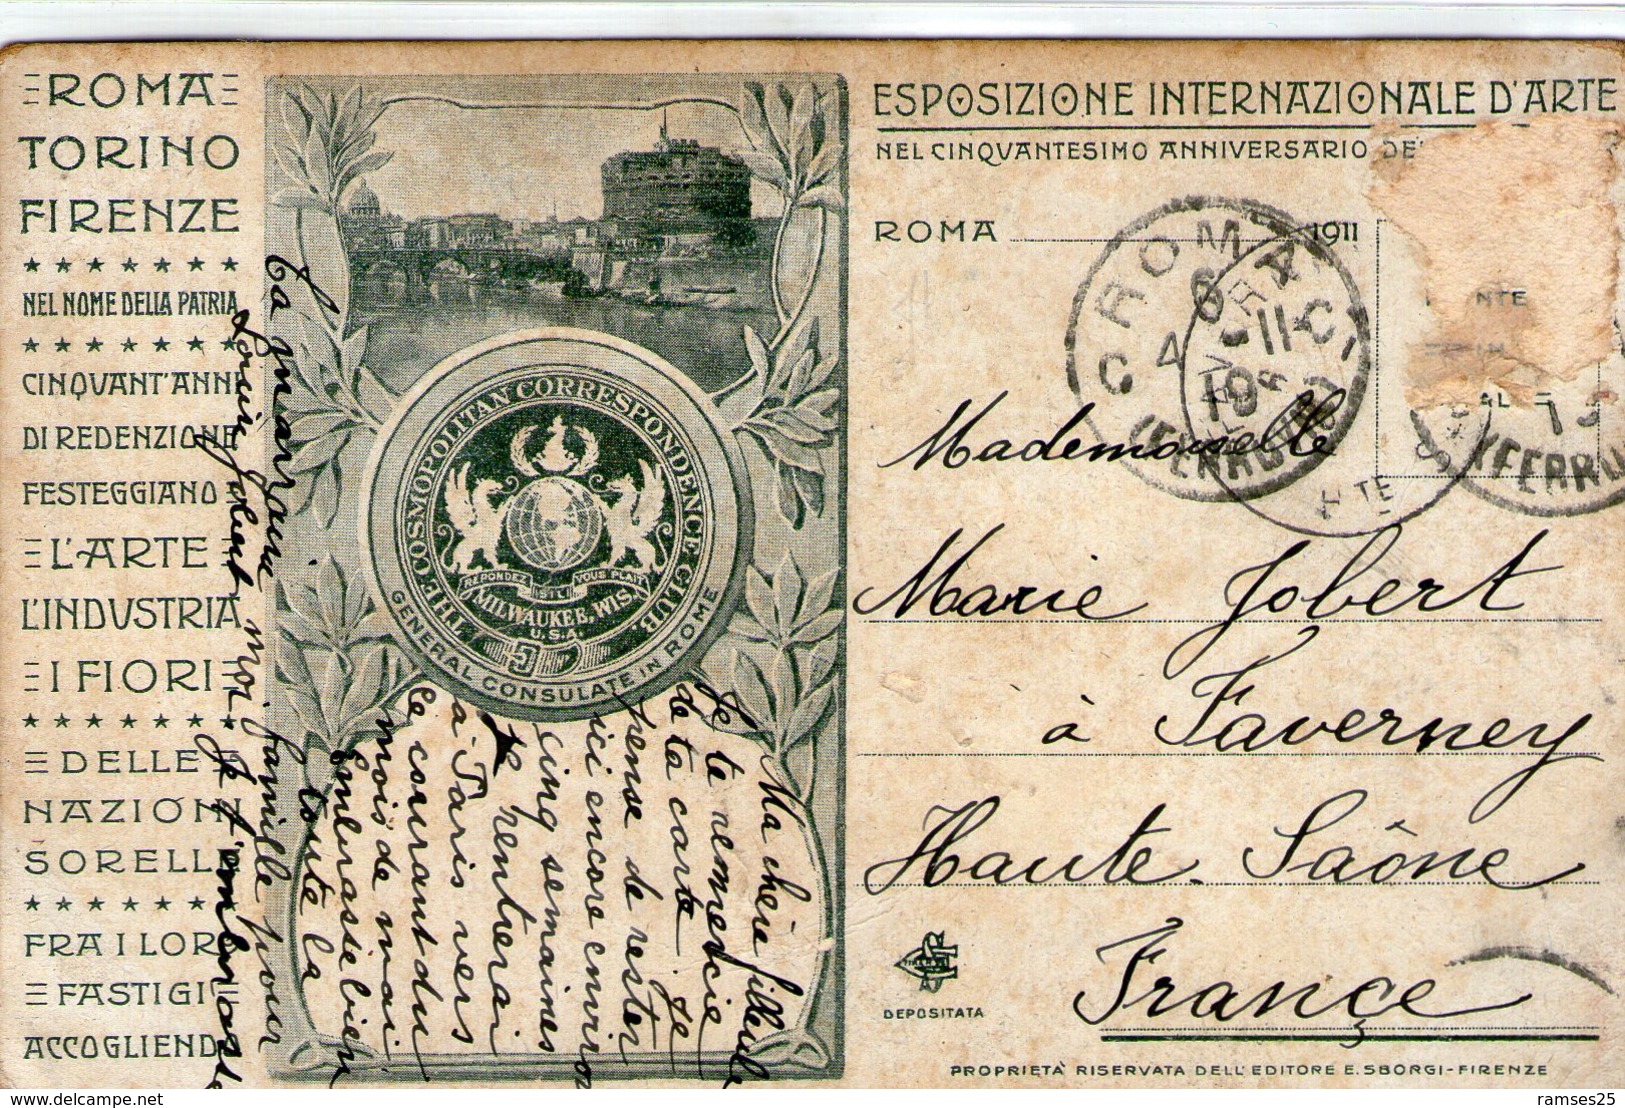 ROMA
TORINO
FIRENZE
NEL NOME DELLA PATRIA
CINQUANT'ANNI
DI REDENZIONE
FESTEGGIANO
L'ARTE
L'INDUSTRIA
I FIORI
DELLE
NAZIONI
SORELLE
FRA I LORO
FASTIGI
ACCOGLIENDO
THE COSMOPOLITAN CORRESPONDENCE CLUB
REPONDEZ S'IL VOUS PLAIT
MILWAUKEE, WIS.
U.S.A.
GENERAL CONSULATE IN ROME
Ma chère filleule
Je te remercie
de ta carte je
pense de rester
ici encore environ
cinq semaines
je rentrerai
à Paris vers
le courant du
mois de mai
Embrasse bien
toute la
famille pour
moi
Je t'embrasse
Ta marraine
Louise Jobert
ESPOSIZIONE INTERNAZIONALE D'ARTE
NEL CINQUANTESIMO ANNIVERSARIO
ROMA 1911
ROMA
(FERROVIA)
Mademoiselle
Marie Jobert
à Faverney
Haute-Saône
Françe
DEPOSITATA
PROPRIETÀ RISERVATA DELL'EDITORE E. SBORGI-FIRENZE
delcampe.net
ramses25